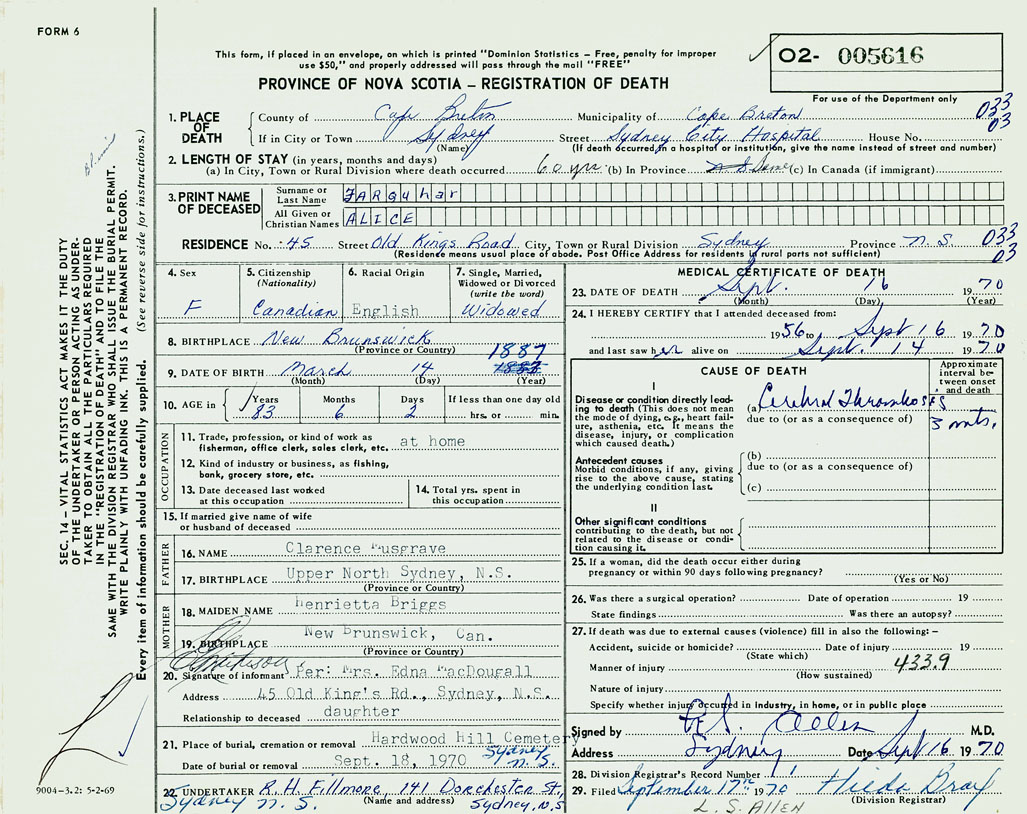 FORM 6
This form, if placed in an envelope, on which is printed "Dominion Statistics – Free, penalty for improper
use $50," and properly addressed will pass through the mail "FREE"
O2- 005616
For use of the Department only
PROVINCE OF NOVA SCOTIA – REGISTRATION OF DEATH
033
03
1. PLACE OF DEATH
County of Cape Breton Municipality of Cape Breton
If in City or Town Sydney Street Sydney City Hospital House No.
(Name) (If death occurred in a hospital or institution, give the name instead of street and number)
2. LENGTH OF STAY (in years, months and days)
(a) In City, Town or Rural Division where death occurred 60 yrs (b) In Province Same (c) In Canada (if immigrant)
3. PRINT NAME OF DECEASED
Surname or Last Name FARQuhar
All Given or Christian Names ALICE
RESIDENCE No. 45 Street Old Kings Road City, Town or Rural Division Sydney Province N.S. 033
03
(Residence means usual place of abode. Post Office Address for residents in rural parts not sufficient)
4. Sex
F
5. Citizenship
(Nationality)
Canadian
6. Racial Origin
English
7. Single, Married,
Widowed or Divorced
(write the word)
Widowed
8. BIRTHPLACE New Brunswick
(Province or Country)
1887
9. DATE OF BIRTH March 14
(Month) (Day) (Year)
10. AGE in
Years Months Days If less than one day old
83 6 2 hrs. or min.
OCCUPATION
11. Trade, profession, or kind of work as
fisherman, office clerk, sales clerk, etc. at home
12. Kind of industry or business, as fishing,
bank, grocery store, etc.
13. Date deceased last worked
at this occupation
14. Total yrs. spent in
this occupation
15. If married give name of wife
or husband of deceased
FATHER
16. NAME Clarence Musgrave
17. BIRTHPLACE Upper North Sydney, N.S.
(Province or Country)
MOTHER
18. MAIDEN NAME Henrietta Briggs
19. BIRTHPLACE New Brunswick, Can.
(Province or Country)
20. Signature of informant Per: Mrs. Edna MacDougall
Address 45 Old King's Rd., Sydney, N.S.
Relationship to deceased daughter
21. Place of burial, cremation or removal Hardwood Hill Cemetery
Sydney N.S.
Date of burial or removal Sept. 18, 1970
22. UNDERTAKER R.H. Fillmore, 141 Dorchester St,
(Name and address)
Sydney N.S. Sydney, N.S
MEDICAL CERTIFICATE OF DEATH
23. DATE OF DEATH Sept. 16 1970
(Month) (Day) (Year)
24. I HEREBY CERTIFY that I attended deceased from:
1956 to Sept 16 1970
and last saw her alive on Sept. 14 1970
CAUSE OF DEATH
Approximate
interval be-
tween onset
and death
I
Disease or condition directly lead-
ing to death (This does not mean
the mode of dying, e.g., heart fail-
ure, asthenia, etc. It means the
disease, injury, or complication
which caused death.)
(a) Cerebral Thrombosis
due to (or as a consequence of)
3 mts.
Antecedent causes
Morbid conditions, if any, giving
rise to the above cause, stating
the underlying condition last.
(b)
due to (or as a consequence of)
(c)
II
Other significant conditions
contributing to the death, but not
related to the disease or condi-
tion causing it.
25. If a woman, did the death occur either during
pregnancy or within 90 days following pregnancy?
(Yes or No)
26. Was there a surgical operation? Date of operation 19
State findings Was there an autopsy?
27. If death was due to external causes (violence) fill in also the following: –
Accident, suicide or homicide? Date of injury 19
(State which)
Manner of injury 433.9
(How sustained)
Nature of injury
Specify whether injury occurred in industry, in home, or in public place
Signed by L.S. Allen M.D.
Address Sydney Date Sept 16 1970
28. Division Registrar's Record Number
29. Filed September 17th 1970 Hilda Bray
(Division Registrar)
L. S. ALLEN
SEC. 14 – VITAL STATISTICS ACT MAKES IT THE DUTY
OF THE UNDERTAKER OR PERSON ACTING AS UNDER-
TAKER TO OBTAIN ALL THE PARTICULARS REQUIRED
IN THE "REGISTRATION OF DEATH" AND TO FILE THE
SAME WITH THE DIVISION REGISTRAR WHO SHALL ISSUE THE BURIAL PERMIT.
WRITE PLAINLY WITH UNFADING INK. THIS IS A PERMANENT RECORD.
Every item of information should be carefully supplied. (See reverse side for instructions.)
9004-3.2: 5-2-69